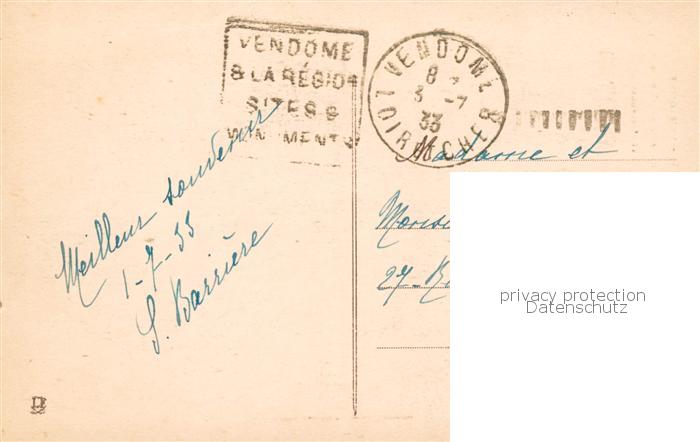 VENDOME
& LA RÉGION
SITES &
MONUMENTS
VENDOME
8
3 -7
33
LOIR & CHER
Meilleur souvenir
1-7-33
S. Barrière
Madame et
27
privacy protection
Datenschutz